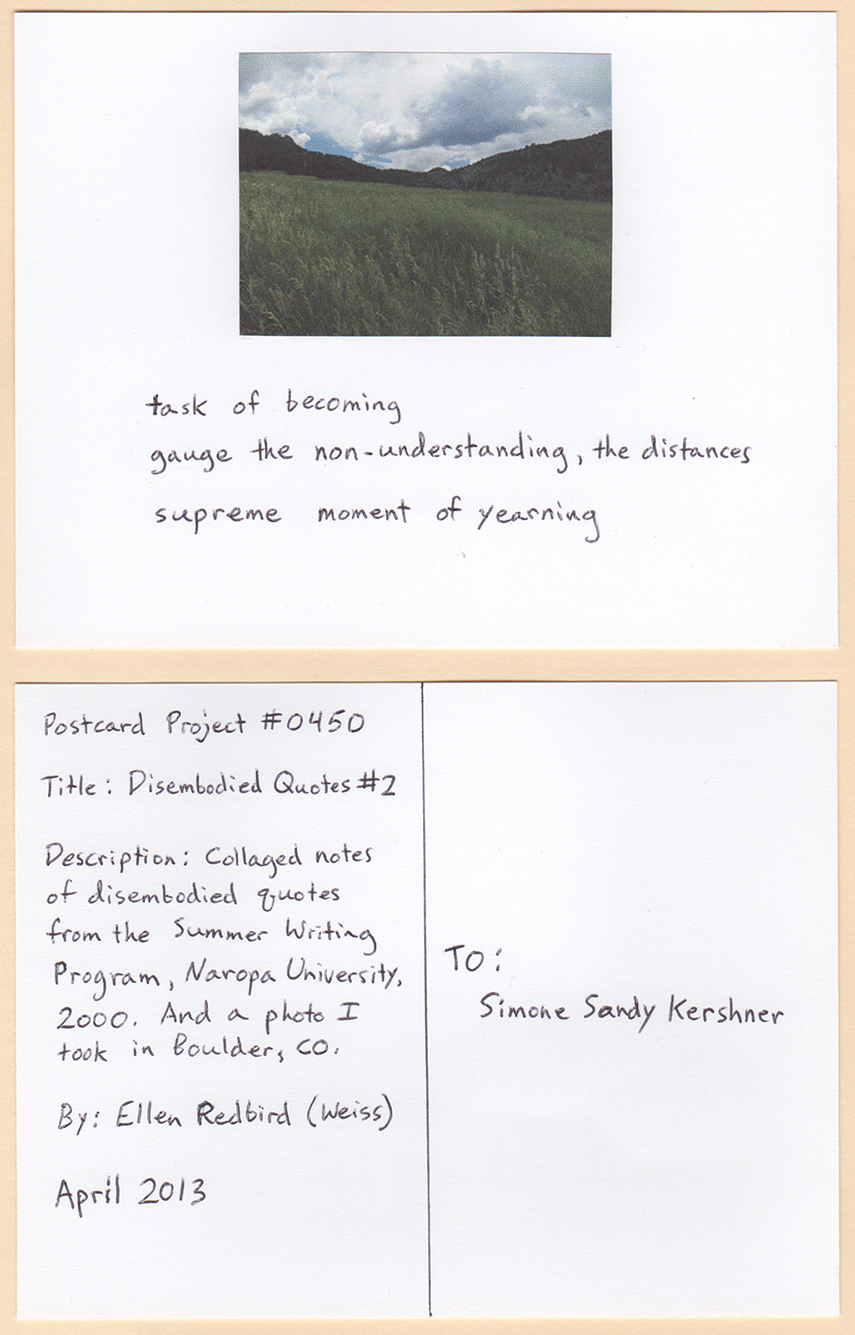 task of becoming
gauge the non-understanding, the distances
supreme moment of yearning
Postcard Project #0450
Title: Disembodied Quotes #2
Description: Collaged notes
of disembodied quotes
from the Summer Writing
Program, Naropa University,
2000. And a photo I
took in Boulder, CO.
By: Ellen Redbird (Weiss)
April 2013
TO:
Simone Sandy Kershner